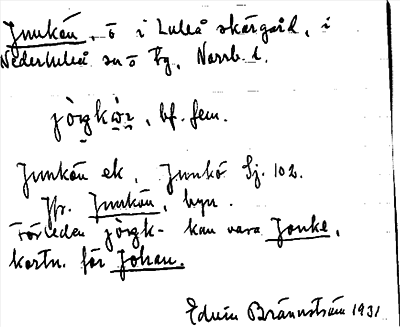 Junkön, ö i Luleå skärgård, i
Nederluleå sn o tg, Norrb. l.
jòrgkàr, bf. fem.
Junkön ek, Junkö Sj. 102.
Jfr. Junkön, byn.
Förleden jòrgk- kan vara Jonke,
kortn. för Johan.
Edvin Brännström 1931